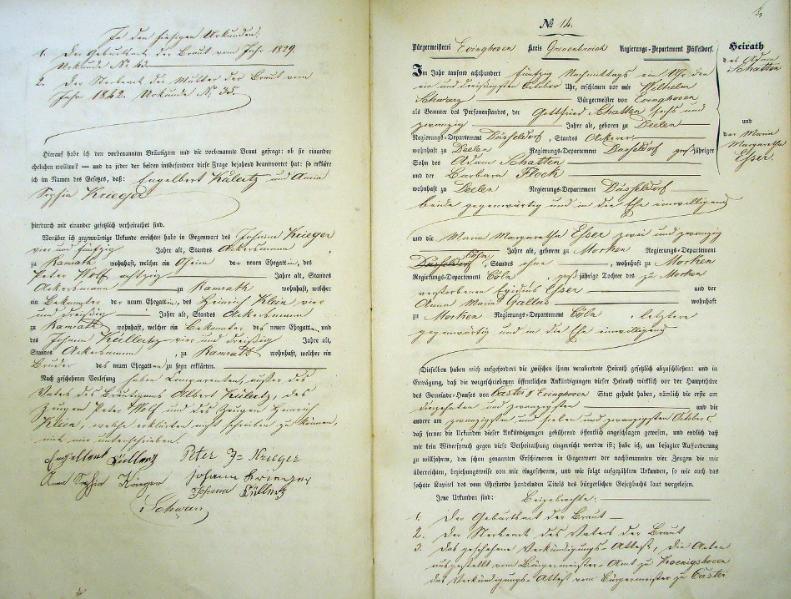 In den hiesigen Urkunden:
1. Der Geburtsakt der Braut vom Jahr 1829
Urkunde N.
2. Der Sterbeakt der Mutter der Braut vom
Jahr 1842. Urkunde N. 35.
Hierauf habe ich den vorbenannten Bräutigam und die vorbenannte Braut gefragt: ob sie einander
ehelichen wollen? — und da jeder der beiden insbesondere diese Frage bejahend beantwortet hat: so erkläre
ich im Namen des Gesetzes, daß: Engelbert Külertz und Anna
Sophia Krieger
hierdurch mit einander gesetzlich verheirathet sind.
Worüber ich gegenwärtige Urkunde errichtet habe in Gegenwart des Johann Krieger
vier und fünfzig Jahre alt, Standes Ackersmann
zu Ramrath wohnhaft, welcher ein Oheim der neuen Ehegattin, des
Peter Wolf achtzig Jahre alt, Standes
Ackersmann zu Ramrath wohnhaft, welcher
ein Bekannter der neuen Ehegattin, des Heinrich Klein vier
und dreißig Jahre alt, Standes Ackersmann
zu Ramrath wohnhaft, welcher ein Bekannter der neuen Ehegattin und
des Johann Küllertz vier und dreißig Jahre alt,
Standes Ackersmann, zu Ramrath wohnhaft, welcher ein
Bruder des neuen Ehegatten zu sein erklärten.
Nach geschehener Vorlesung haben Comparenten, außer des
Vaters des Bräutigams Albert Külertz, des
Zeugen Peter Wolf und des Zeugen Heinrich
Klein, welche erklärten nicht schreiben zu können,
mit mir unterschrieben.
Engelbert Küllertz Peter Krieger
Ana Sophia Krieger Johann Krieger
Johann Küllertz
Schwarz
№ 14.
Bürgermeisterei Evinghoven Kreis Grevenbroich Regierungs-Departement Düsseldorf.
Heirath
des Adam
Schatten
und
der Maria
Margaretha
Esser.
Im Jahr tausend achthundert fünfzig Nachmittags ein Uhr den
ein und dreißigsten October Uhr, erschienen vor mir Wilhelm
Schwarz Bürgermeister von Evinghoven
als Beamter des Personenstandes, der Gottfried Schatten sechs und
zwanzig Jahre alt, geboren zu Deelen
Regierungs-Departement Düsseldorf, Standes Ackerer
wohnhaft zu Deelen Regierungs-Departement Düsseldorf großjähriger
Sohn des Adam Schatten
und der Barbara Flock
wohnhaft zu Deelen Regierungs-Departement Düsseldorf
beide gegenwärtig und in die Ehe einwilligend
und die Maria Margaretha Esser zwei und zwanzig
Jahre alt, geboren zu Morken Regierungs-Departement
Düsseldorf Cöln, Standes ohne, wohnhaft zu Morken
Regierungs-Departement Cöln, großjährige Tochter des zu Morken
verstorbenen Egidius Esser und der
Anna Maria Gallas wohnhaft
zu Morken Regierungs-Departement Cöln, letztere
gegenwärtig und in die Ehe einwilligend
Dieselben haben mich aufgefordert die zwischen ihnen verabredete Heirath gesetzlich abzuschließen: und in
Erwägung, daß die vorgeschriebenen öffentlichen Ankündigungen dieser Heirath wirklich vor der Hauptthüre
des Gemeinde-Hauses von Caster & Evinghoven Statt gehabt haben, nämlich die erste am
zwanzigsten und die
andere am zwanzigsten und sieben und zwanzigsten October
daß ferner die Urkunden dieser Ankündigungen gehörend öffentlich angeschlagen gewesen, und endlich daß
Jene Urkunden sind: Beigebrachte:
1. Der Geburtsakt der Braut —
2. Der Sterbeakt des Vaters der Braut
3. Das geschehene Verkündigungs-Attest, die Acten
ausgestellt vom Bürgermeister-Amt zu Koenigshoven
das Verkündigungs-Attest vom Bürgermeister zu Caster